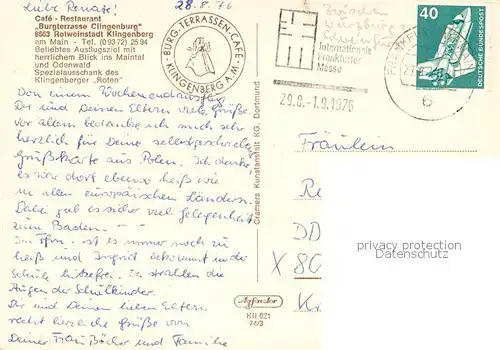 Liebe Renate!
28.8.76
Café - Restaurant
"Burgterrasse Clingenburg"
8663 Rotweinstadt Klingenberg
am Main - Tel. (09372) 2594
Beliebtes Ausflugsziel mit
herrlichem Blick ins Maintal
und Odenwald
Spezialausschank des
Klingenberger „Roten"
BURG-TERRASSEN-CAFE
KLINGENBERG A. M.
Zwischen
Würzburg
Internationale
Frankfurter
Messe
29.8.-1.9.1976
40
DEUTSCHE BUNDESPOST
6
Von einem Wochenendausflug
Dir und Deinen Eltern viele Grüße.
vor allem bedanke ich mich sehr
herzlich für Deine selbstgeschriebene
Grußkarte aus Polen. Ich denke,
es war dort ebenso heiß wie
in allen europäischen Ländern.
Dabei gab es sicher viel Gelegenheit
zum Baden. - - -
ist es immer noch zu
heiß und Ingrid bekommt in der
Schule hitzefrei. Da strahlen die
Augen der Schulkinder.
Dir und Deinen lieben Eltern
recht herzliche Grüße von
Deiner Frau Bächer und Familie
Cramers Kunstanstalt KG, Dortmund
Agfacolor
Kli 021
74/3
Fräulein
Re
DD
X 80
K
privacy protection
Datenschutz